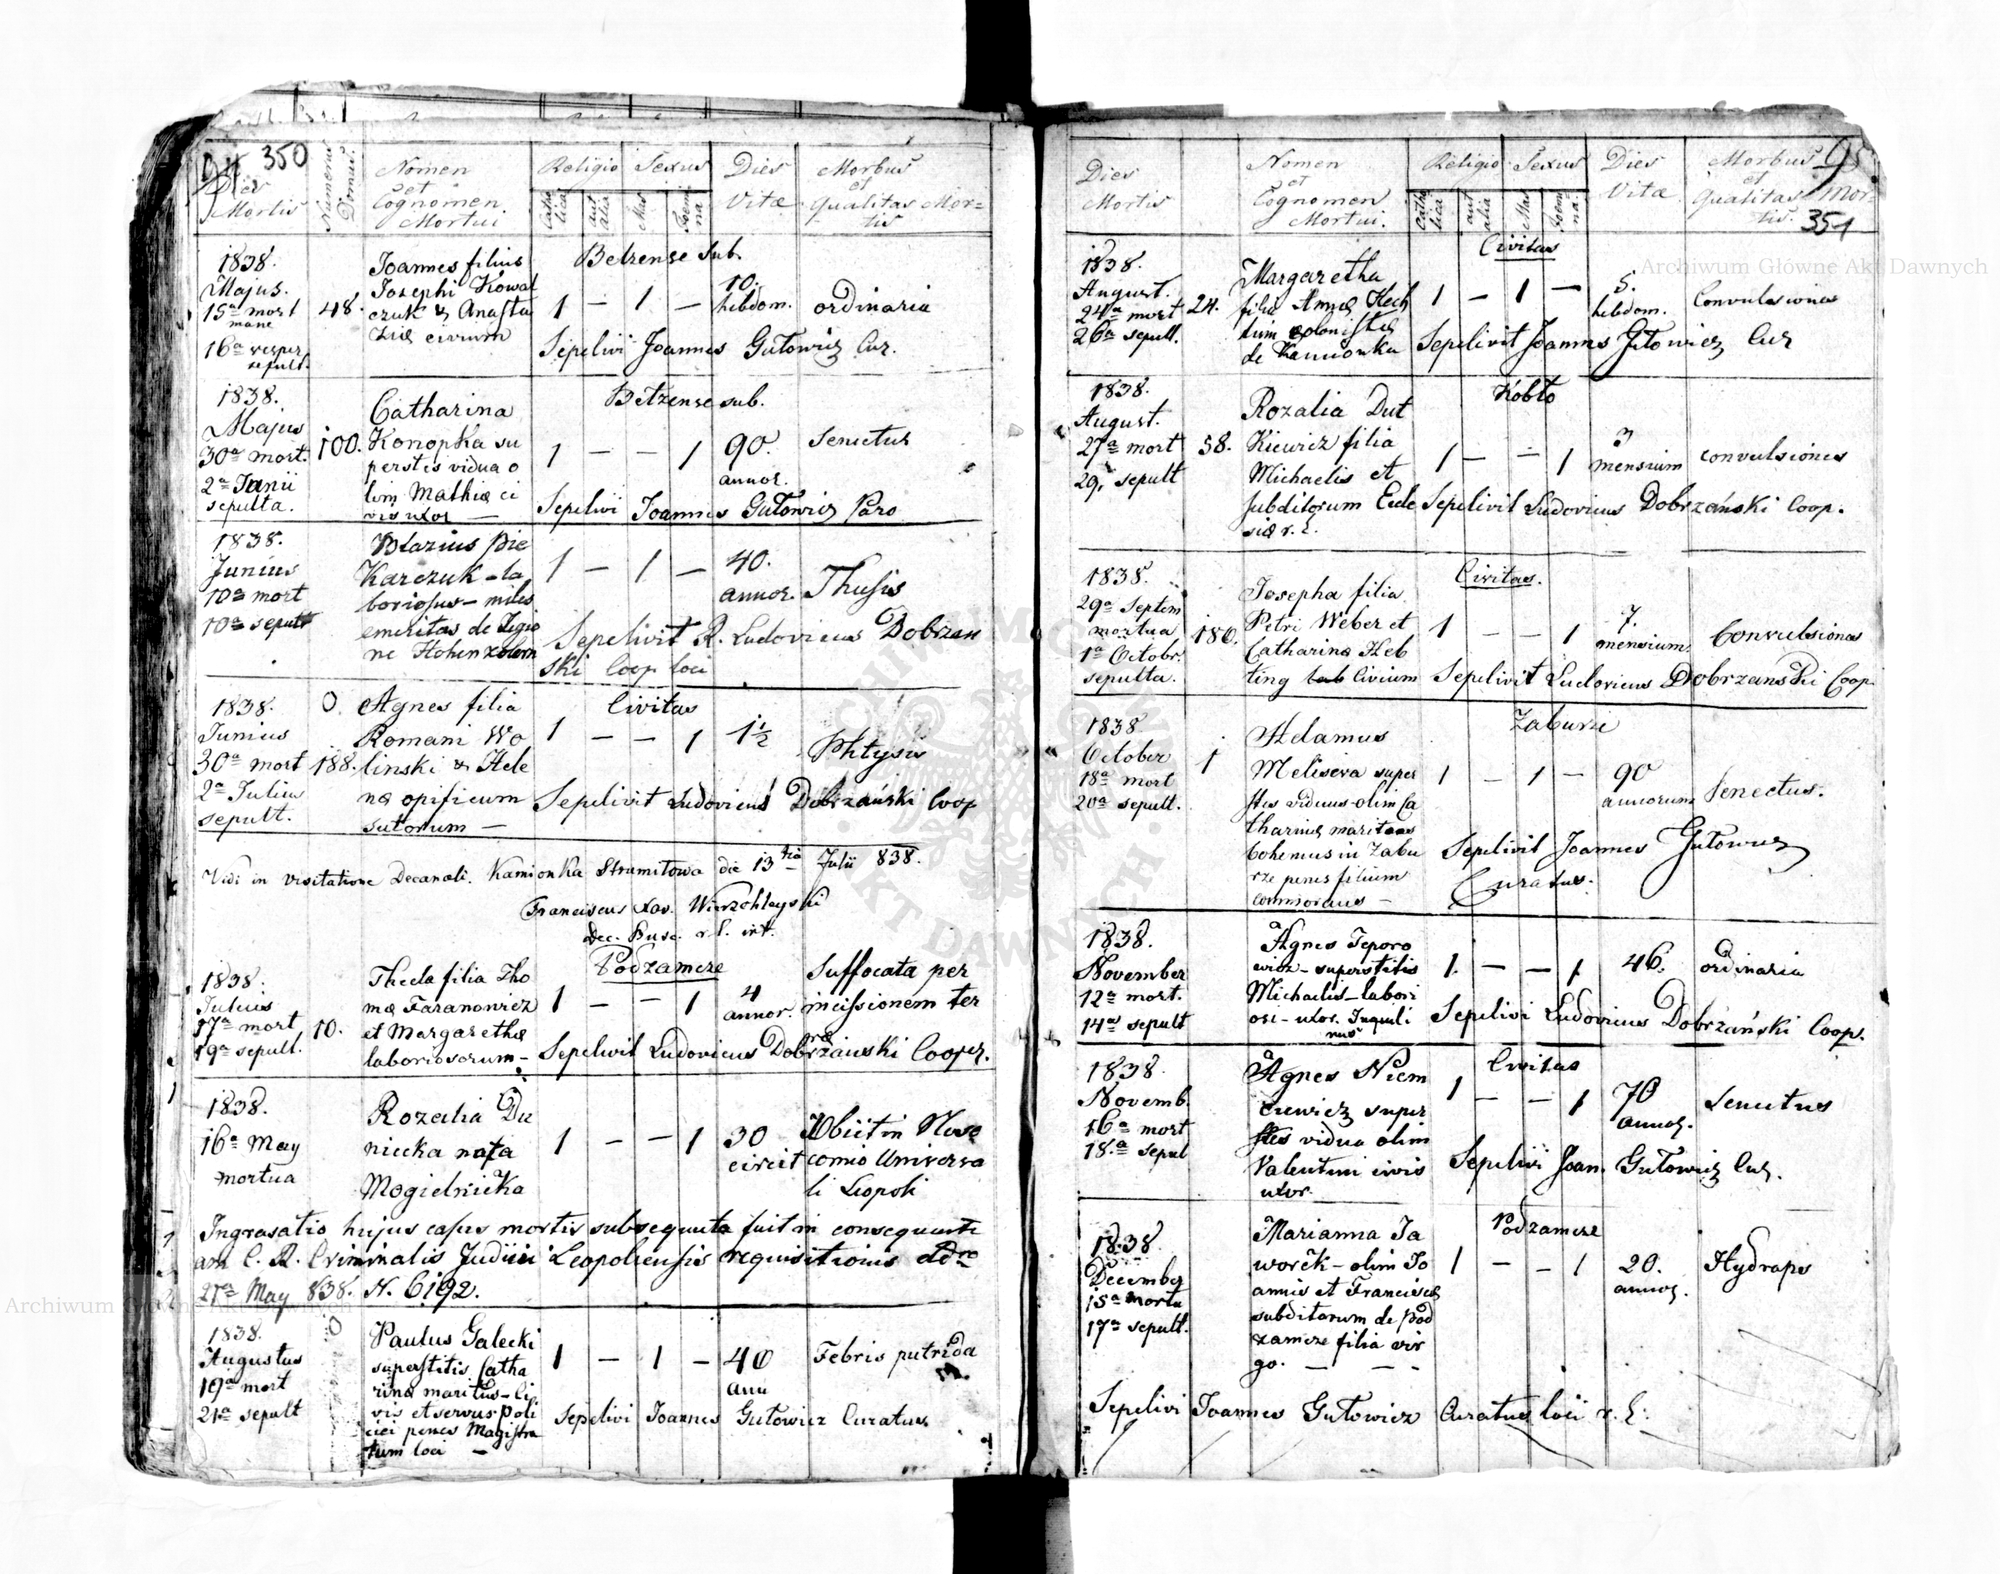 350
Dies
Mortis
Numerus
Domus
Nomen
et
Cognomen
Mortui
Religio
Catho
lica
aut
alia
Sexus
Mas
Foemi
na
Dies
Vitæ
Morbus
et
Qualitas Mor=
tis
1838.
Majus.
15ª mort
mane
16ª vesper
sepult.
48.
Joannes filius
Josephi Kowal
czuk & Anasta
ziæ civium
Belzense sub.
1 — 1 —
10.
hebdom.
ordinaria
Sepelivi Joannes Gutowicz Cur.
1838.
Majus
30ª mort.
2ª Junii
sepulta.
100.
Catharina
Konopka su
perstis vidua o
lim Mathiæ ci
vis uxor —
Betzense sub.
1 — — 1
90.
annor.
Senectus
Sepelivi Joannes Gutowicz Paro
1838.
Junius
10ª mort
10ª sepult
Blazius Pie
Karczuk - la
boriosus - miles
emeritas de Legio
ne Hohenzolern
1 — 1 —
40.
annor.
Thysis
Sepelivit R. Ludovicus Dobrzan
ski Coop loci
1838.
Junius
30ª mort
2ª Julius
sepult.
188.
Agnes filia
Romani Wo
linski & Hele
næ opificum
sutorum —
Civitas
1 — — 1
1½
Phtysis
Sepelivit Ludovicus Dobrzański Coop
Vidi in visitatione Decanali. Kamionka Strumitowa die 13 Julii 838.
Franciscus Xav. Wierzchleyski
Dec. Busc. r. l. int.
1838.
Julius
17ª mort
19ª sepult.
10.
Thecla filia Tho
mæ Faranowicz
et Margarethæ
laboriosorum -
Podzamcze
1 — — 1
4
annor.
Suffocata per
incissionem ter
ræ
Sepelivit Ludovicus Dobrzański Cooper.
1838.
16ª May
mortua
Rozalia Du
niecka nata
Mogielnicka
1 — — 1
30
circit
Obiit in Noso
comio Universa
li Leopoli
Ingrasatio hujus casus mortis subsequuta fuit in consequenti
am C. R. Criminalis Judicii Leopoliensis requisitionis ddto
21ª May 838. N. 6192.
1838.
Augustus
19ª mort
21ª sepult
Paulus Galecki
superstitis Catha
rinæ maritus - Ci
vis et servus poli
ciei penes Magistra
tum loci —
1 — 1 —
40
ann
Febris putrida
Sepelivi Joannes Gutowicz Curatus
95
351
Dies
Mortis
Nomen
et
Cognomen
Mortui.
Religio
Catho
lica
aut
alia
Sexus
Mas
Foemi
na
Dies
Vitæ
Morbus
et
Qualitas Mor=
tis
1838.
August.
24ª mort
26ª sepult.
24.
Margaretha
filia Annæ Hech
tum colonistæ
de Kamionka
Civitas
1 — 1 —
5.
hebdom.
Convulsiones
Sepelivit Joannes Gutowicz Cur
1838.
August.
27ª mort
29. sepult
58.
Rozalia Dut
Kiewicz filia
Michaelis et
Subditorum Eccle
siæ r. l.
Kobło
1 — — 1
3
mensium
convulsiones
Sepelivit Ludovicus Dobrzański Coop.
1838.
29ª Septem
mortua
1ª Octobr.
sepulta.
180.
Josepha filia
Petri Weber et
Catharinæ Heb
ting Civium
Civitas.
1 — — 1
7.
mensium
Convulsiones
Sepelivit Ludovicus Dobrzański Coop.
1838.
October
18ª mort
20ª sepult.
1
Adamus
Meliseva super
stes viduus - olim Ca
tharinæ maritus
bohemus in Zabu
rze penes filium
commorans —
Zaburze
1 — 1 —
90
annorum
Senectus.
Sepelivit Joannes Gutowicz
Curatus.
1838.
November
12ª mort.
14ª sepult
Agnes Teporo
wicz - superstitis
Michaelis - labori
osi - uxor. Inquili
nus
1. — — 1
46.
ordinaria
Sepelivi Ludovicus Dobrzański Coop.
1838.
Novemb.
16ª mort
18.ª sepul
Agnes Niem
czewicz super
stes vidua olim
Valentini civis
uxor.
Civitas
1 — — 1
70
annor.
Senectus
Sepelivi Joan. Gutowicz Cur.
1838.
December
15ª mortu
17ª sepult.
Marianna Ja
worek - olim Jo
annis et Franciscæ
subditorum de Pod
zamcze filia vir
go. — — -
Podzamcze
1 — — 1
20.
annor.
Hydrops
Sepelivi Joannes Gutowicz Curatus loci r. l.
Archiwum Główne Akt Dawnych
Archiwum Główne Akt Dawnych
ARCHIWUM GŁÓWNE AKT DAWNYCH